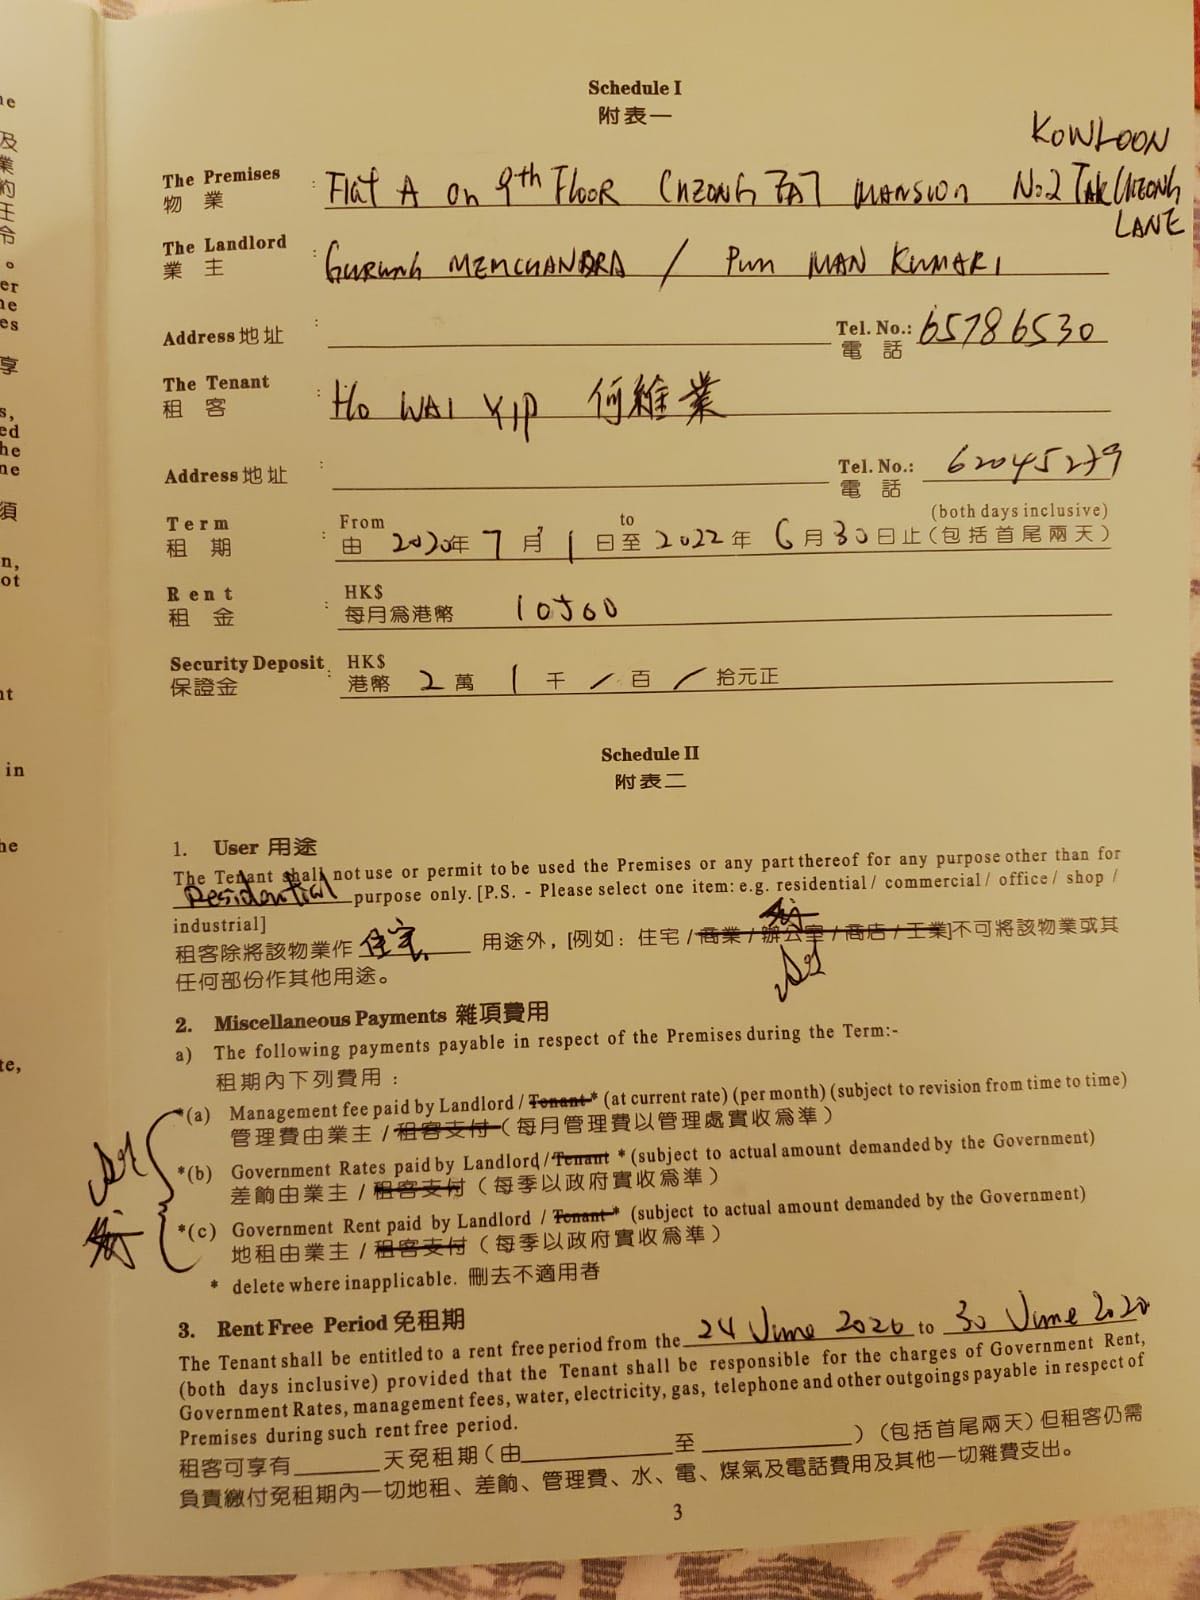 Schedule I
附表一
KOWLOON
The Premises : Flat A on 9th FLOOR CHEONG FAT MANSION No.2 TAK CHEONG
物 業
LANE
The Landlord : GURUNG MEMCHANDRA / PUN MAN KUMARI
業 主
Address 地址 : Tel. No.: 65786530
電 話
The Tenant : HO WAI YIP 何維業
租 客
Address 地址 : Tel. No.: 62045279
電 話
(both days inclusive)
Term From to
租 期 : 由 2020年 7 月 1 日至 2022 年 6 月 30 日止 (包括首尾兩天)
Rent : HK$
租 金 每月爲港幣 10500
Security Deposit : HK$
保證金 港幣 2 萬 1 千 / 百 / 拾元正
Schedule II
附表二
1. User 用途
The Tenant shall not use or permit to be used the Premises or any part thereof for any purpose other than for
Residential purpose only. [P.S. - Please select one item: e.g. residential / commercial / office / shop /
industrial]
租客除將該物業作 住宅 用途外，[例如：住宅 / 商業 / 辦公室 / 商店 / 工業]不可將該物業或其
任何部份作其他用途。
2. Miscellaneous Payments 雜項費用
a) The following payments payable in respect of the Premises during the Term:-
租期內下列費用：
*(a) Management fee paid by Landlord / Tenant * (at current rate) (per month) (subject to revision from time to time)
管理費由業主 / 租客支付 (每月管理費以管理處實收爲準)
*(b) Government Rates paid by Landlord / Tenant * (subject to actual amount demanded by the Government)
差餉由業主 / 租客支付 (每季以政府實收爲準)
*(c) Government Rent paid by Landlord / Tenant * (subject to actual amount demanded by the Government)
地租由業主 / 租客支付 (每季以政府實收爲準)
* delete where inapplicable. 刪去不適用者
3. Rent Free Period 免租期
The Tenant shall be entitled to a rent free period from the 24 June 2020 to 30 June 2020
(both days inclusive) provided that the Tenant shall be responsible for the charges of Government Rent,
Government Rates, management fees, water, electricity, gas, telephone and other outgoings payable in respect of
Premises during such rent free period.
租客可享有 天免租期 (由 至 ) (包括首尾兩天) 但租客仍需
負責繳付免租期內一切地租、差餉、管理費、水、電、煤氣及電話費用及其他一切雜費支出。
3